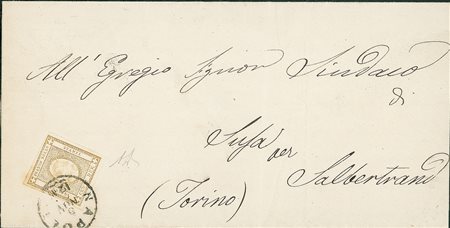 All' Egregio Signor Sindaco
di
Susa per
Salbertrand
(Torino)
NAPOLI